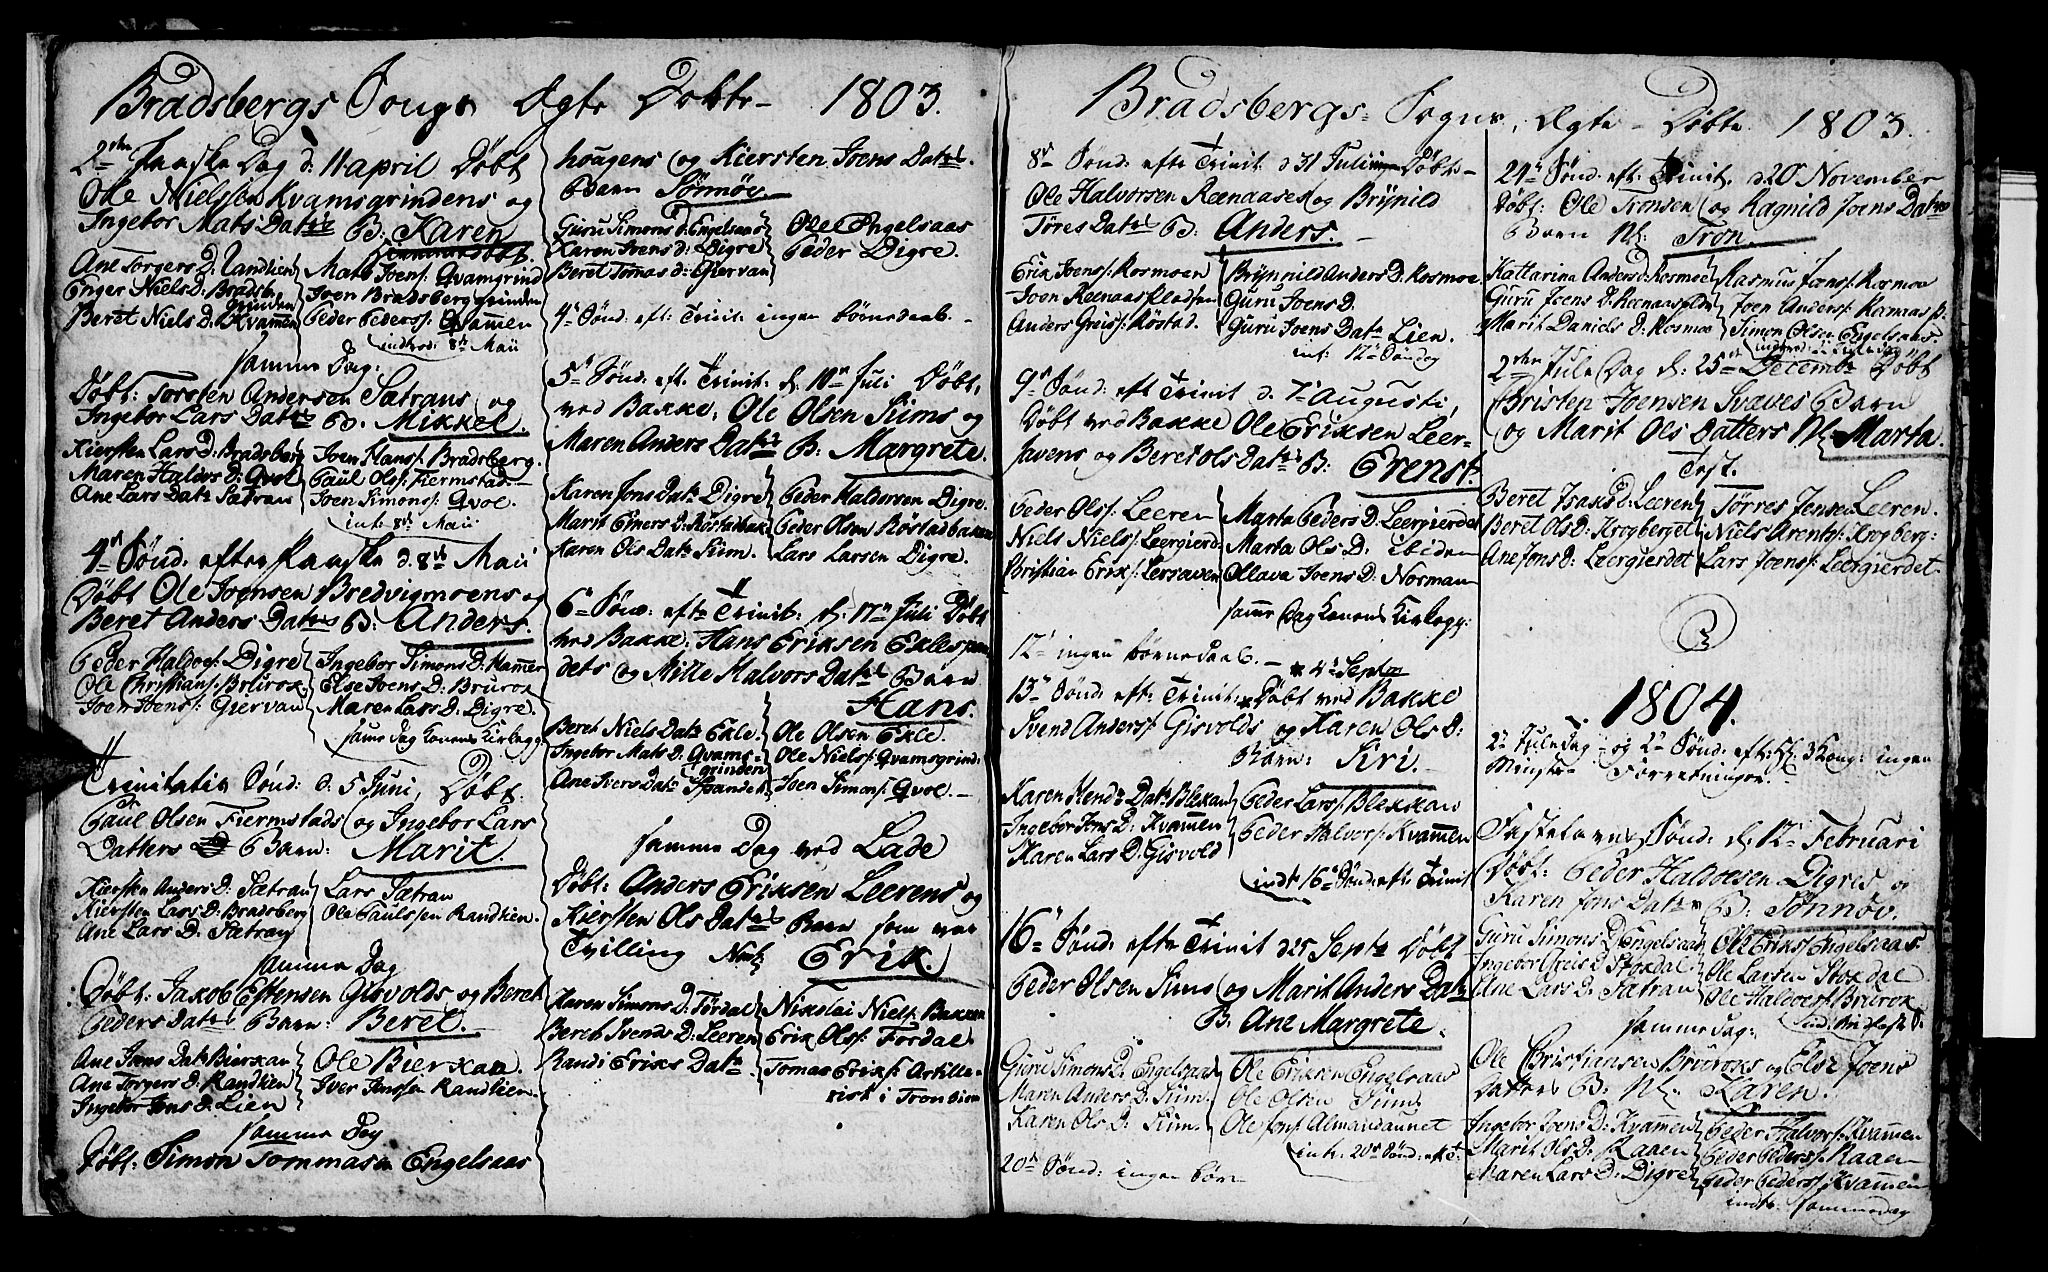 Bradsbergs Sougn Ægte Døbte 1803.
2den Paaske Dag d: 11 april Døbt
Ole Nielsen Kvamsgrindens og
Ingebor Mats Datrs B: Karen
hiemmedøbt.
Ane Torgers D. Randlien
Enger Niels D: Bradsb.
grinden
Beret Niels D: Kvammen
Mats Joens: Qvamgrind
Joen Bradsberggrinden
Peder Peders: Qvammen
introd: 8de Maii
samme Dag:
Døbt: Torsten Andersen Sætrans og
Ingebor Lars Datrs B. Mikkel.
Kiersten Lars D: Bradsberg
Maren Haldors D: Qvol
Ane Lars Datr Sætran
Joen Hans: Bradsberg.
Paul Ols: Fiermstad
Joen Simons: Qvol.
intr: 8de Maii
4de Sønd: efter Paaske d. 8de Maii
Døbt Ole Joensen Bredvigmoens og
Beret Anders Datrs B: Anders.
Peder Haldors: Digre
Ole Christians: Brurok
Joen Joens: Giervan
Ingebor Simons D: Hammer
Else Joens D: Brurok
Maren Lars D. Digre.
same dag Konens Kirkegg:
Trinitatis Sønd: d. 5 Juni, Døbt
Paul Olsen Fiermstads og Ingebor Lars
Datters Barn: Marit.
Kiersten Anders D: Sætran
Kiersten Lars D: Bradsberg
Ane Lars D. Sætran
Lars Sætran
Ole Paulssen Randlien.
samme Dag
Døbt: Jakob Estensen Gisvolds og Beret
Peders Datrs Barn: Beret.
Ane Jons Datr Bierkan
Ane Torgers D. Randlien
Ingebor Jons D. Lien
Ole Bierkan
Iver Jenssen Randlien.
samme Dag
Døbt: Simon Tommasen Engelsaas
hougens og Kiersten Joens Datrs.
Barn Sønnøv.
Guru Simons D: Engelsaas
Karen Joens d: Digre
Beret Tomas d: Giervan
Ole Engelsaas
Peder Digre.
4de Sønd: eft: Trinit: ingen Børnedaab.
5te Sønd: eft: Trinit: d. 10de Juli Døbt,
ved Bakke, Ole Olsen Siims og
Maren Anders Datrs B: Margrete
Karen Jons Datr Digre
Marit Einers D: Røstadbak
Karen Ols Datr Siim.
Peder Haldorsen Digre.
Peder Olsen Røstadbakken
Lars Larsen Digre.
6te Sønd: eft: Trinit: d. 17de Juli Døbt
ved Bakke, Hans Eriksen Eklespan
dets og Mille Halvors Datrs Barn
Hans.
Beret Niels Datr Ekle.
Ingebor Mats D: Qvams
grinden
Ane Ivers Datr Spandet
Ole Olsen Ekle.
Ole Niels: Qvamsgrind:
Joen Simons: Qvol.
samme Dag ved Lade
Døbt: Anders Eriksen Leerens og
Kiersten Ols Datrs Barn som var
Tvilling Navnl: Erik.
Karen Simons D: Tørdal
Beret Svends D: Leeren
Randi Eriks Datr
Nikolai Niels: Bakken
Erik Ols: Fordal
Tomas Eriks: Artille-
rist i Trondhiem
Bradsbergs Sogns, Ægte Døbte 1803.
8de Sønd: eft: Trinit: d 31 Juli Døbt
Ole Halvorsen Reenaases og Brynild
Tøres Datrs B: Anders.
Erik Joens: Rosmoen
Joen Reenaaspladsen
Anders Greis: Røstad.
Brynnild Anders D: Rosmoe
Guru Joens D.
Guru Joens Datr Lien.
int: 12te Søndag
9de Sønd: eft Trinit d 7de Augusti,
Døbt ved Bakke Ole Eriksen Leer-
savens og Beret Ols Datrs B: Erenst.
Peder Ols: Leeren
Niels Niels: Leergierd
Christian Eriks: Lersaven
Marta Peders D: Leergierdet
Marta Ols D: ibidem
Ollava Joens D: Norman
samme Dag Konens Kirkegg:
12te ingen Børnedaab. 4de Septr
13de Sønd: eft: Trinit: Døbt ved Bakke
Svend Anders: Gisvolds og Karen Ols D:
Barn: Siri.
Karen Hend: Datr Blekan
Ingebor Jons D: Kvammen
Karen Lars D: Gisvold
Peder Lars: Blekkan
Peder Halvors: Kvammen
indt 16de Sønd: eft: Trinit
16de Sønd: eft: Trinit d 25 Septr Døbt
Peder Olsen Siims og Marit Anders Datrs
B. Ane Margrete.
Guru Simons D: Engelsaas
Maren Anders D: Siim
Karen Ols D: Siim.
Ole Eriksen Engelsaas
Ole Olsen Siim
Ole Jons: Almaadaunet
intr: 20de Sønd: eft T:
20de Sønd: ingen Børn
24de Sønd: eft: Trinit. d 20 November
Døbt: Ole Tronsen og Ragnild Joens Datrs
Barn Nl: Tron.
Kattarina Anders d: Rosmoe
Guru Joens D: Reenaasplds
Marit Daniels D: Rosmoe
Rasmus Joens: Rosmoe
Joen Anders: Renaas p:
Simon Olsen Engelsaas
2den Jule Dag d: 25de Decembr Døbt
Cristen Joensen Svaves Barn
og Marit Ols Datters Nl: Marta.
Test.
Beret Isaks D: Leeren
Beret Ols D: Krogberget
Ane Jons D: Leergierdet
Tørres Jensen Leeren.
Niels Arents: Krogberg:
Lars Joens: Leergierdet.
1804.
2de Juledag og 2de Sønd: eft: H: 3 Kong: ingen
Ministr. Forretninger.
Fastelavns Sønd: d. 12te Februari
Døbt: Peder Haldorsen Digres og
Karen Jons Datrs B. Sønnøv.
Guru Simons D. Engelsaas
Ingebor Greis D. Stokdal
Ane Lars D. Sætran
Ole Eriks: Engelsaas
Ole Larsen Stokdal
Ole Haldors: Brurok
samme dag:
Ole Christiansen Bruroks og Else Joens
Datters B. Nl. Karen.
Ingebor Joens D: Kvammen
Marit Ols D: Raaen
Maren Lars D: Digre
Peder Halvors: Kvammen
Peder Peders: Raaen
Peder Peders: Kvammen
indtr. sammedag